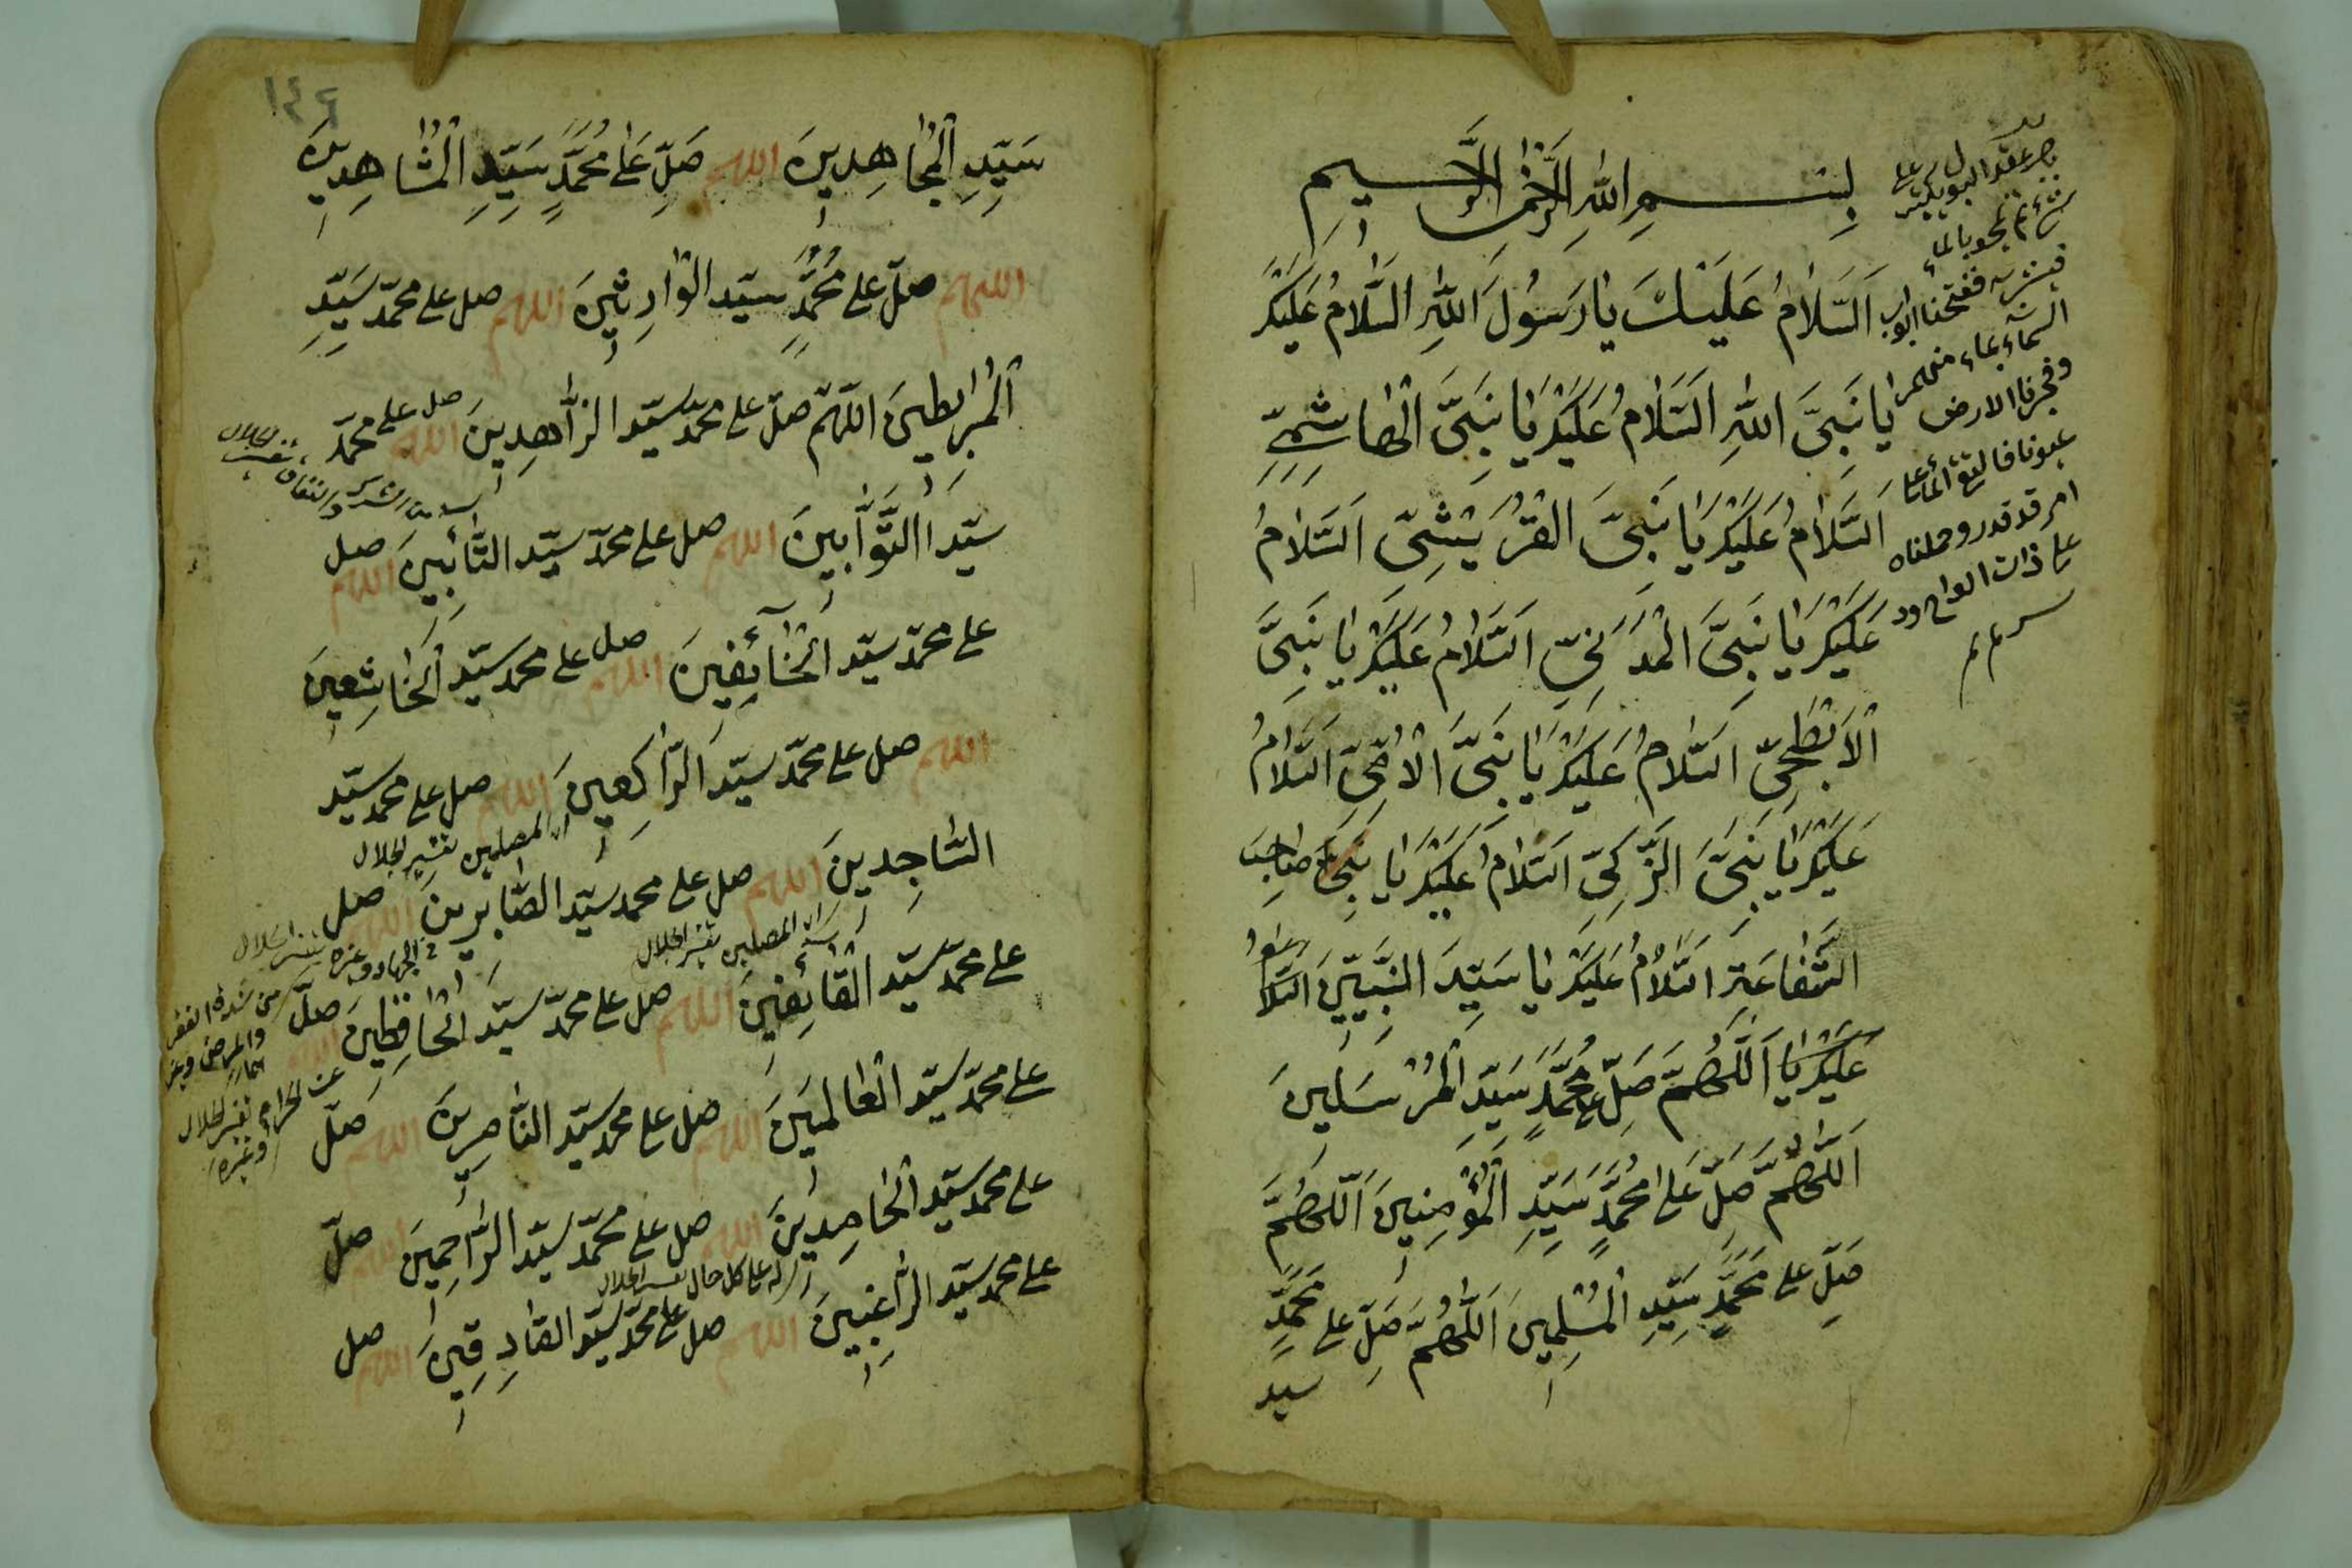 بسم الله الرحمن الرحيم
اَلسَّلَامُ عَلَيْكَ يَا رَسُولَ اللهِ السَّلَامُ عَلَيْكَ
يَا نَبِيَّ اللهِ السَّلَامُ عَلَيْكَ يَا نَبِيَّ الْهَاشِمِيِّ
اَلسَّلَامُ عَلَيْكَ يَا نَبِيَّ الْقُرَيْشِيِّ اَلسَّلَامُ
عَلَيْكَ يَا نَبِيَّ الْمَدَنِيِّ السَّلَامُ عَلَيْكَ يَا نَبِيَّ
الْأَبْطَحِيِّ السَّلَامُ عَلَيْكَ يَا نَبِيَّ الْأُمِّيِّ السَّلَامُ
عَلَيْكَ يَا نَبِيَّ الزَّكِيِّ السَّلَامُ عَلَيْكَ يَا نَبِيَّ صَاحِبَ
الشَّفَاعَةِ السَّلَامُ عَلَيْكَ يَا سَيِّدَ النَّبِيِّينَ السَّلَامُ
عَلَيْكَ يَا اَللّٰهُمَّ صَلِّ عَلٰى مُحَمَّدٍ سَيِّدِ الْمُرْسَلِينَ
اَللّٰهُمَّ صَلِّ عَلٰى مُحَمَّدٍ سَيِّدِ الْمُؤْمِنِينَ اَللّٰهُمَّ
صَلِّ على مُحَمَّدٍ سَيِّدِ الْمُسْلِمِينَ اَللّٰهُمَّ صَلِّ على مُحَمَّدٍ
سيد
ثم نجو بالماء
ففتحنا ابواب
السماء بماء منهمر
وفجرنا الارض
عيونا فالتقى الماء على
امر قد قدر وحملناه
على ذات الواح ود
سر
١٤٦
سَيِّدِ الْمُجَاهِدِينَ اللهم صَلِّ عَلٰى مُحَمَّدٍ سَيِّدِ الْمُشَاهِدِينَ
اللهم صلّ على مُحَمَّدٍ سيّد الْوَارِثِينَ اللهم صل على محمّد سَيِّدِ
الْمُرَابِطِينَ اللّهمّ صلّ على محمّد سيّد الزَّاهِدِينَ اللهم صل على محمّد
سيّد التَّوَّابِينَ اللهم صل على محمّد سيّد التَّائِبِينَ اللهم صل
على محمّد سيّد الْخَائِفِينَ اللهم صل على محمد سيّد الْخَاشِعِينَ
اللهم صل على محمّد سيّد الرَّاكِعِينَ اللهم صل على محمد سيّد
السَّاجِدِينَ اللهم صل على محمد سيّد الصَّابِرِينَ اللهم صل
على محمّد سيّد الْقَائِفِينَ اللهم صل على محمّد سيّد الْحَافِظِينَ اللهم صلّ
على محمّد سيّد الْعَالَمِينَ اللهم صل على محمد سيّد النَّاصِرِينَ اللهم صلّ
على محمد سيّد الْحَامِدِينَ اللهم صل على محمّد سيّد الرَّاحِمِينَ اللهم صلّ
على محمد سيّد الرَّاغِبِينَ اللهم صل على محمّد سيّد الصَّادِقِينَ اللهم صل
من الشرك والنفاق تفسير الجلال
اى المصلين تفسير الجلال
اى المصلين تفسير الجلال
من شدة الفقر
والمرض
عن الحرام تفسير الجلال
وغيره
على كل حال تفسير الجلال